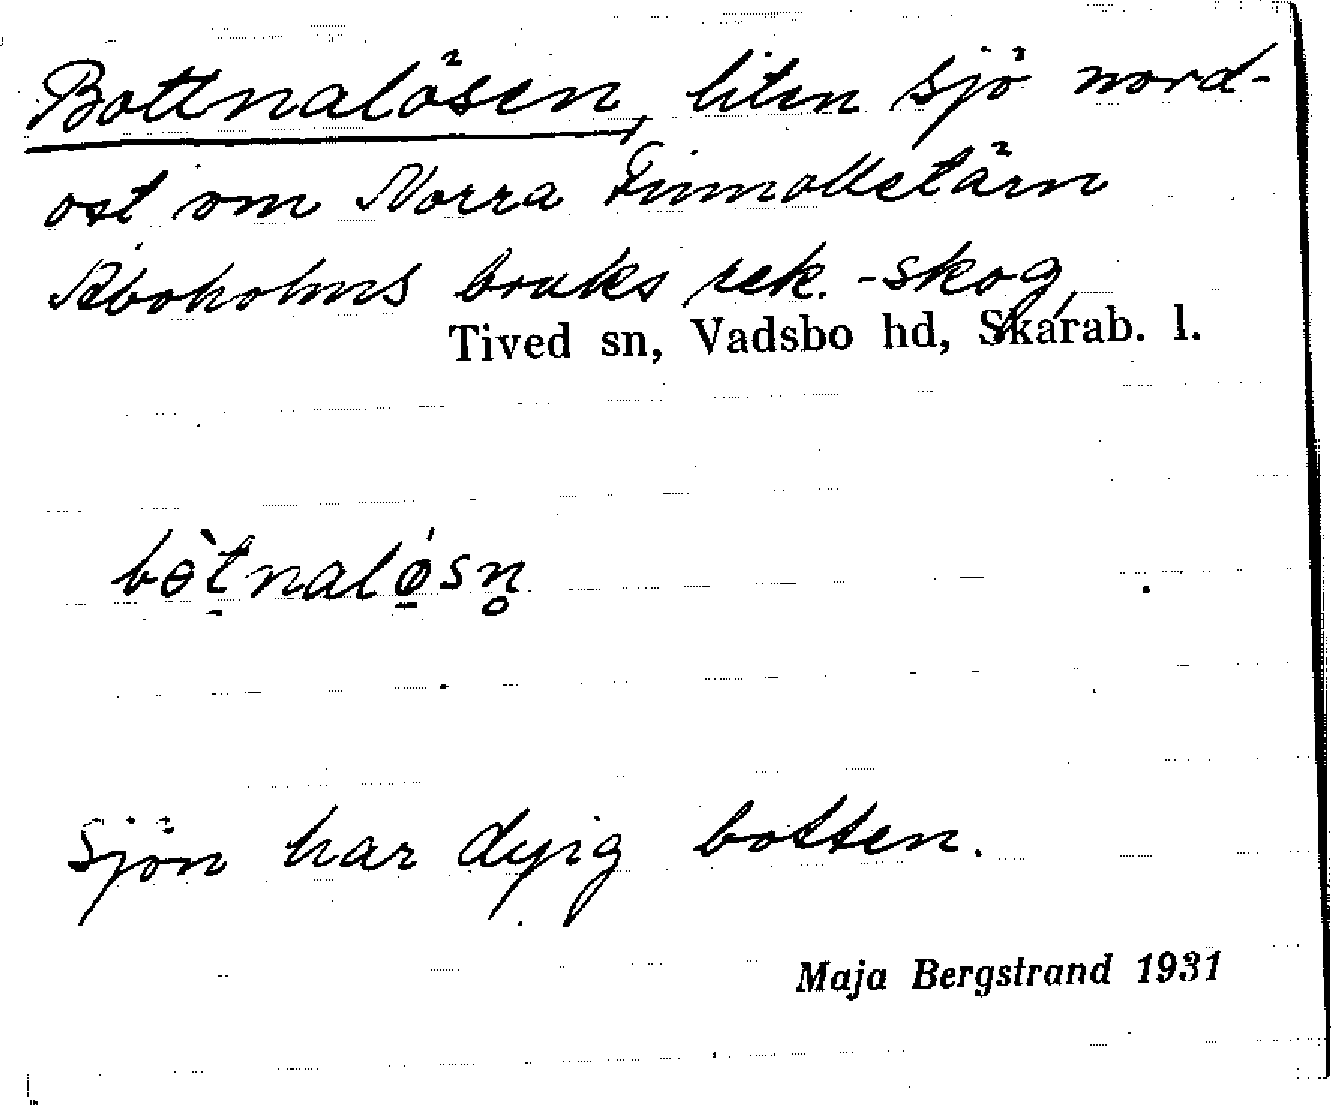 Bottnalösen, liten sjö nord-
ost om Norra Finnolletärn
Åboholms bruks rek.-skog,
Tived sn, Vadsbo hd, Skarab. l.
bòtnalǿsn̥
Sjön har dyig botten.
Maja Bergstrand 1931